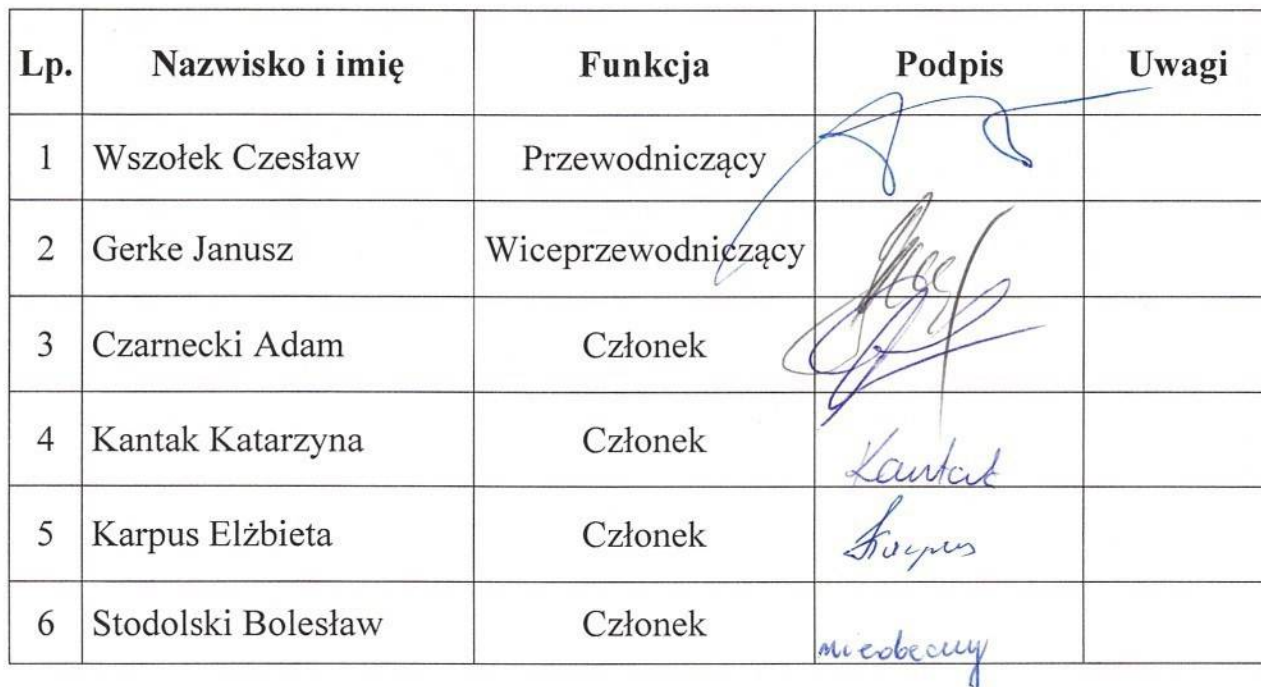 Lp. Nazwisko i imię Funkcja Podpis Uwagi
1 Wszołek Czesław Przewodniczący
2 Gerke Janusz Wiceprzewodniczący
3 Czarnecki Adam Członek
4 Kantak Katarzyna Członek Kantak
5 Karpus Elżbieta Członek Karpus
6 Stodolski Bolesław Członek nieobecny